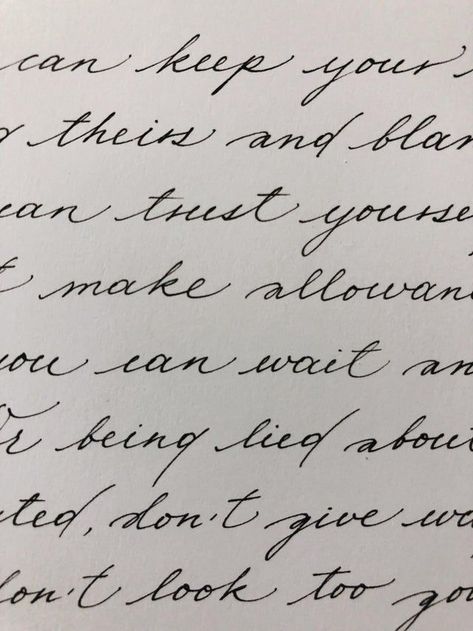 can keep your
g theirs and blam
can trust yourse
t make allowanc
you can wait an
Or being lied about
ated, don't give wa
don't look too goo